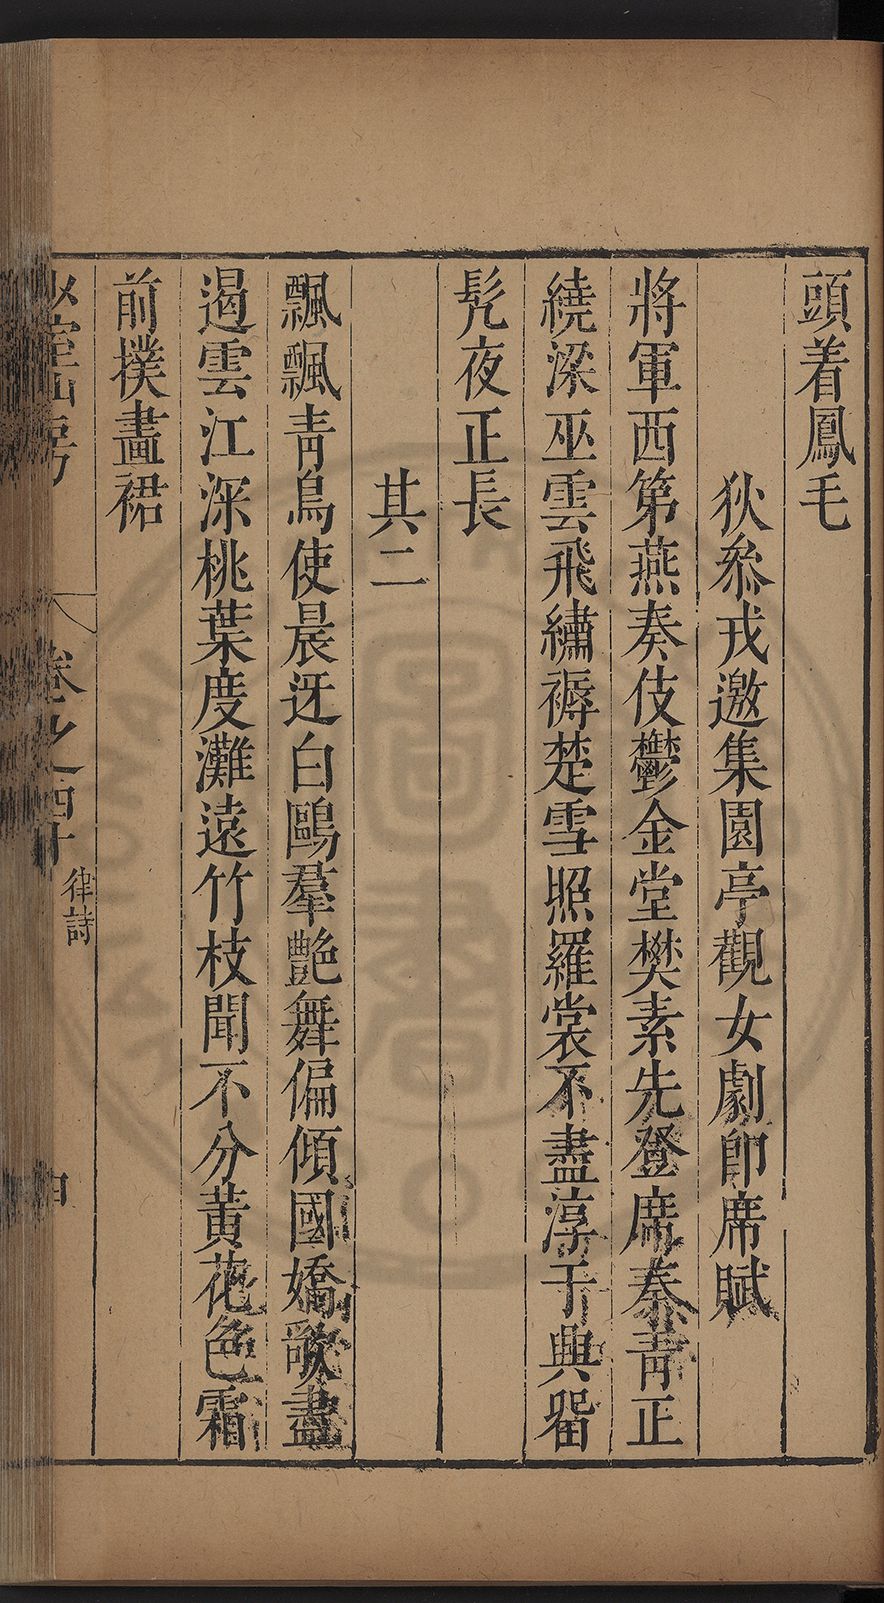 頭着鳳毛
狄叅戎邀集園亭觀女劇卽席賦
將軍西第燕奏伎鬱金堂樊素先登席秦青正
繞梁巫雲飛繡褥楚雪照羅裳不盡淳于興留
髠夜正長
其二
飄飄青鳥使晨迓白鷗羣艶舞偏傾國嬌歌盡
遏雲江深桃葉度灘遠竹枝聞不分黃花色霜
前撲畫裙
卷之四十
律詩